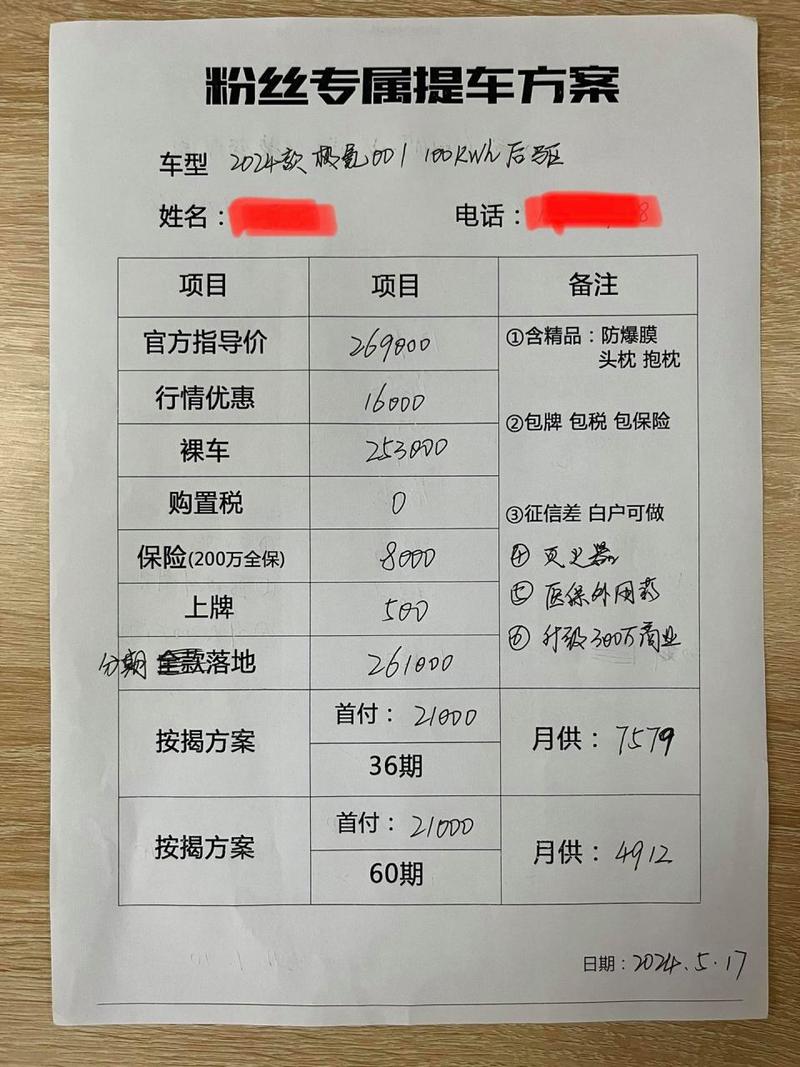 粉丝专属提车方案
车型 2024款 极氪001 100KWh 后驱
姓名：
电话： 8
项目 项目 备注
官方指导价 269000
①含精品：防爆膜
头枕 抱枕
行情优惠 16000
②包牌 包税 包保险
裸车 253000
购置税 0
③征信差 白户可做
保险(200万全保) 8000
④ 灭火器
上牌 500
⑤ 医保外用药
⑥ 升级300万商业
分期 全款落地 261000
按揭方案 首付：21000 月供：7579
36期
按揭方案 首付：21000 月供：4912
60期
日期：2024.5.17